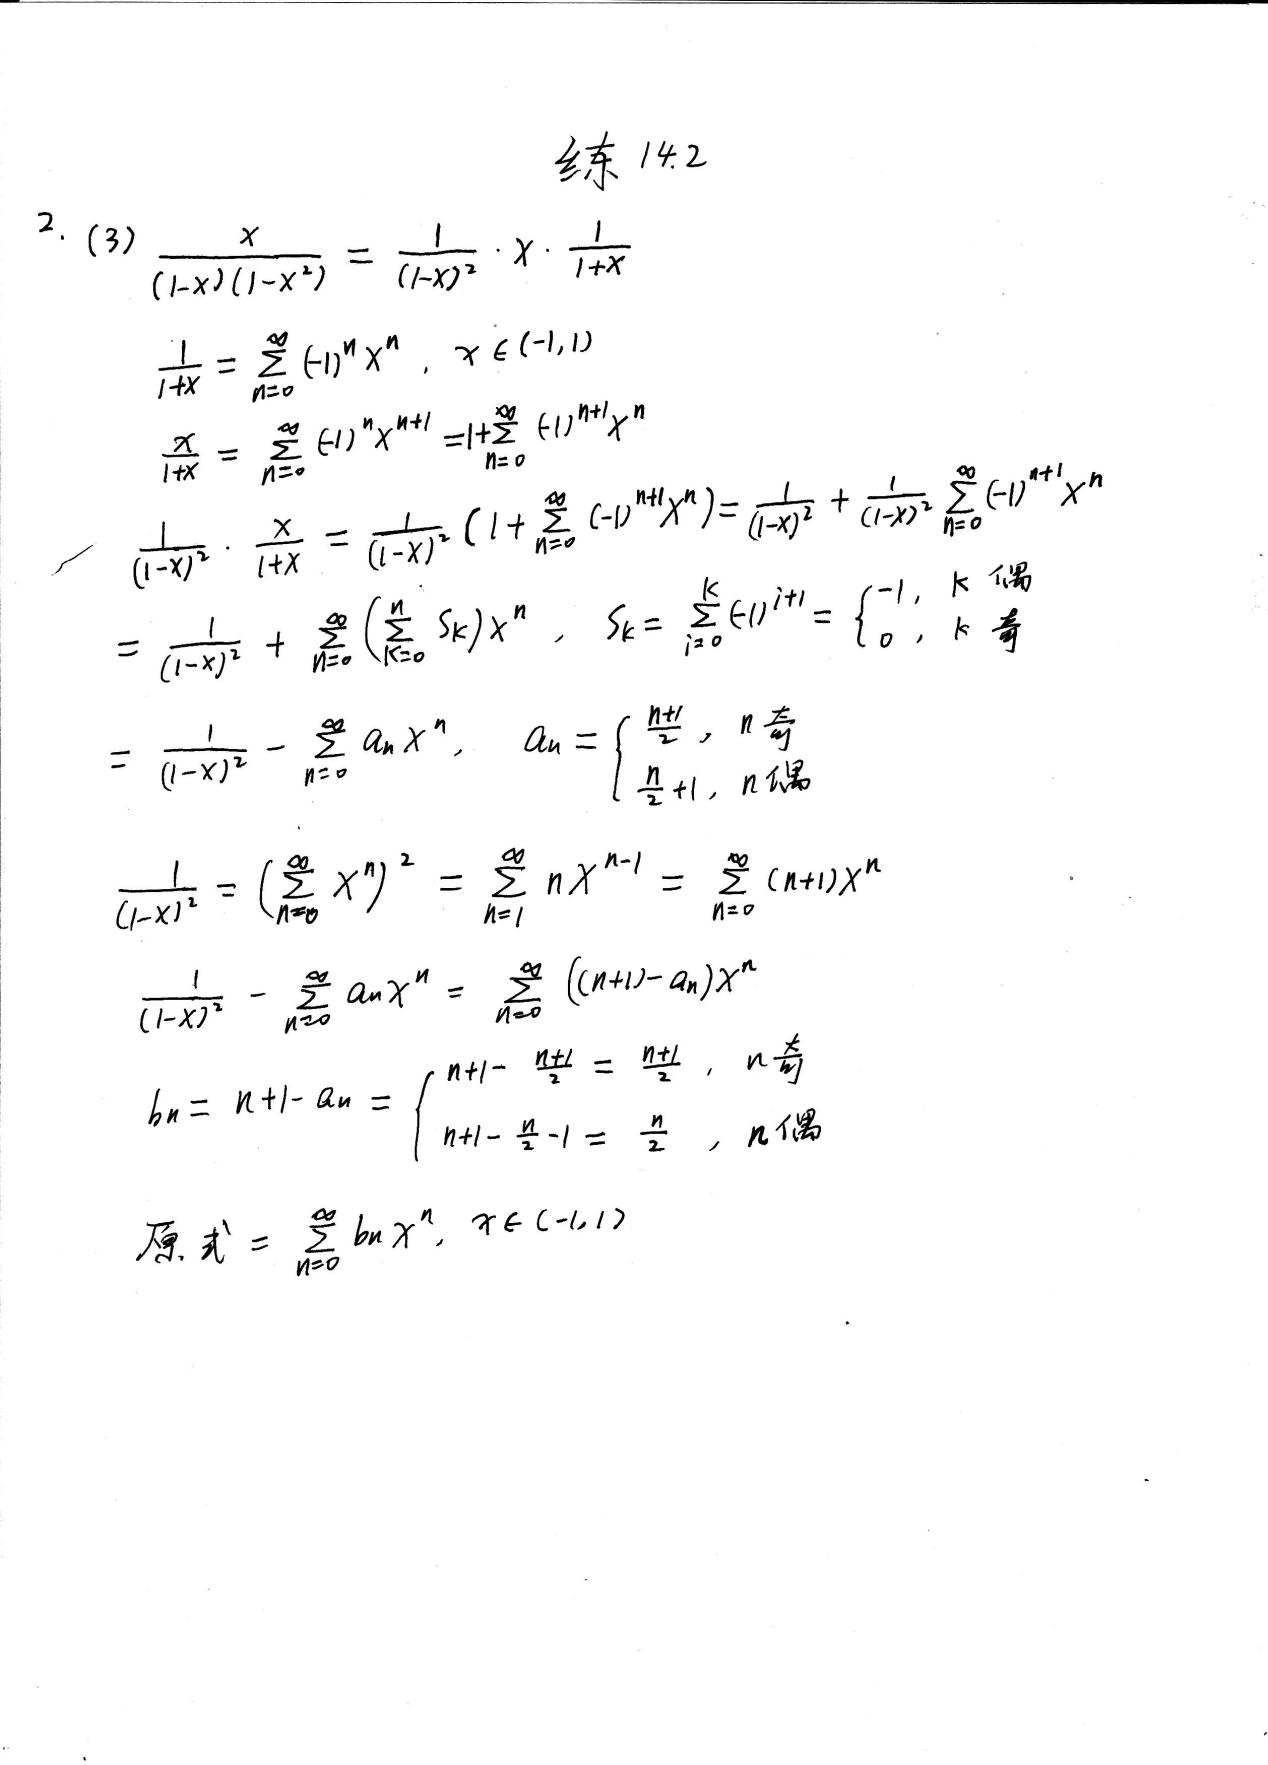 练 14.2
2. (3) \frac{x}{(1-x)(1-x^2)} = \frac{1}{(1-x)^2} · x · \frac{1}{1+x}
\frac{1}{1+x} = \sum_{n=0}^{∞} (-1)^n x^n , x ∈ (-1,1)
\frac{x}{1+x} = \sum_{n=0}^{∞} (-1)^n x^{n+1} = 1+\sum_{n=0}^{∞} (-1)^{n+1} x^n
\frac{1}{(1-x)^2} · \frac{x}{1+x} = \frac{1}{(1-x)^2} (1+\sum_{n=0}^{∞} (-1)^{n+1} x^n) = \frac{1}{(1-x)^2} + \frac{1}{(1-x)^2} \sum_{n=0}^{∞} (-1)^{n+1} x^n
= \frac{1}{(1-x)^2} + \sum_{n=0}^{∞} (\sum_{k=0}^{n} S_k) x^n , S_k = \sum_{i=0}^{k} (-1)^{i+1} = { -1, k 偶 ; 0, k 奇
= \frac{1}{(1-x)^2} - \sum_{n=0}^{∞} a_n x^n, a_n = { \frac{n+1}{2}, n 奇 ; \frac{n}{2}+1, n 偶
\frac{1}{(1-x)^2} = (\sum_{n=0}^{∞} x^n)^2 = \sum_{n=1}^{∞} n x^{n-1} = \sum_{n=0}^{∞} (n+1) x^n
\frac{1}{(1-x)^2} - \sum_{n=0}^{∞} a_n x^n = \sum_{n=0}^{∞} ((n+1)-a_n) x^n
b_n = n+1-a_n = { n+1-\frac{n+1}{2} = \frac{n+1}{2}, n 奇 ; n+1-\frac{n}{2}-1 = \frac{n}{2}, n 偶
原式 = \sum_{n=0}^{∞} b_n x^n, x ∈ (-1,1)